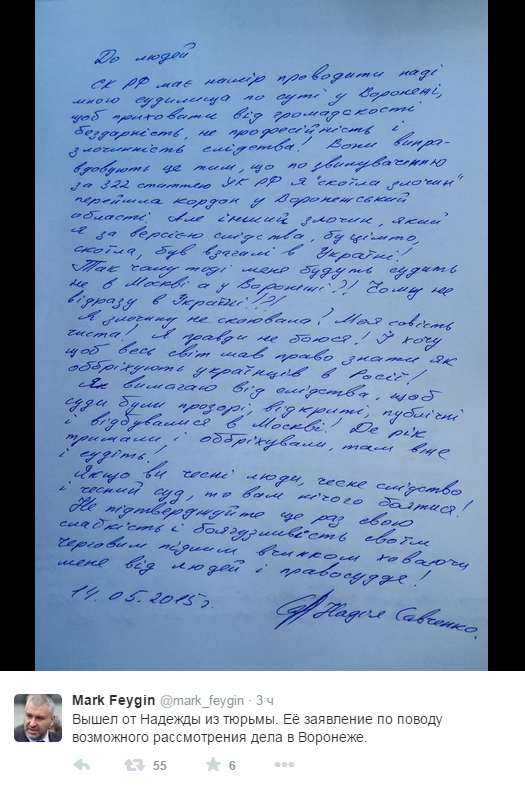 До людей
СК РФ має намір проводити наді
мною судилища по суті у Воронені,
щоб приховати від громадскості
бездарність, не професійність і
злочинність слідства! Вони випра-
вдовують це тим, що по звинуваченню
за 322 статтею УК РФ я "скоїла злочин"
перейшла кордон у Воронешський
області. Але інший злочин, який
я за версією слідства, буцімто,
скоїла, був взагалі в Україні!
Так чому тоді мене будуть судить
не в Москві а у Воронені?! Чому не
відразу в Україні!?!
Я злочину не скоювала! Моя совість
чиста! Я правди не боюся! Я хочу
щоб весь світ мав право знати як
оббріхують українців в Росії!
Як вимагаю від слідства, щоб
суди були прозорі, відкриті, публічні
і відбувалися в Москві! Де рік
тримали і оббріхували, там вже
і судіть!
Якщо ви чесні люди, чесне слідство
і чесний суд, то вам нічого боятися!
Не підтверджуйте ще раз свою
слабкість і боягузливість своїм
черговим підлим вчинком ховаючи
мене від людей і правосуддя!
14.05.2015г.
Надія Савченко.
Mark Feygin @mark_feygin · 3 ч
Вышел от Надежды из тюрьмы. Её заявление по поводу
возможного рассмотрения дела в Воронеже.
55 6